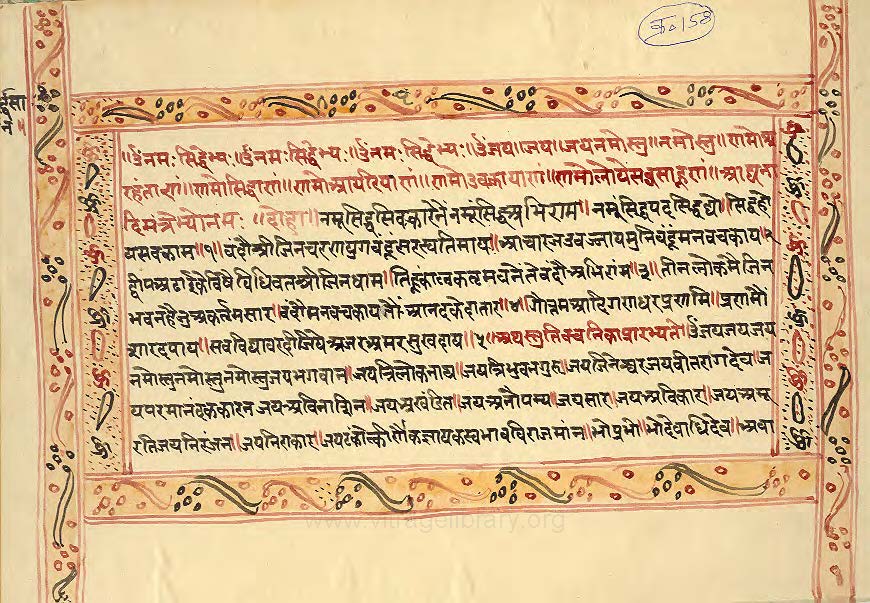 क्र० 158
॥ॐ नमः सिद्धेभ्यः॥ॐ नमः सिद्धेभ्यः॥ॐ नमः सिद्धेभ्यः॥ॐ जय॥जय॥जयनमोस्तु॥नमोस्तु॥णमोअ
रहंताणं॥णमोसिद्धाणं॥णमोआयरियाणं॥णमोउवज्झायाणं॥णमोलोयेसव्वसाहूणं॥
नमः ॥दोहा॥नमूसिद्ध नमूंसिद्धअभिराम॥नमूसिद्धपद
यसवकाम॥१॥वंदौश्रीजिनचरणयुगवंदूसरस्वतिमाय॥आचारजउवज्जायमुनिवंदूमनवचकाय॥२
द्वीपअढाईकेविषे श्रीजिनधाम॥ वंदौअभिरांम॥३॥तीनलोकमैजिन
भवनहै सार॥वंदौमनवचकाय आनदकेदातार॥४॥गोतमआदिगणधरप्रणमि॥प्रणमौं
शारदपाय॥सवविद्यावरदीजिये अजरअमरसुखदाय॥५॥अथस्तुतिवचनिकाप्रारभ्यते॥ॐजयजयजय
नमोस्तुनमोस्तुनमोस्तुजयभगवान॥जयत्रिलोकनाथ॥जयत्रिभुवनगुरु॥जयजिनेश्वरजयवीतरागदेव॥ज
यपरमानंद जयअविनाशिन॥जयअखंडित॥जयअनौपम्य॥जयसार॥जयअविकार॥जयअमू
रतिजयनिरंजन॥जयनिराकार॥जयटंकोत्कीर्णज्ञायकस्वभावविराजमांन॥भोप्रभो॥भोदेवाधिदेव॥अवा
www.vitragelibrary.org